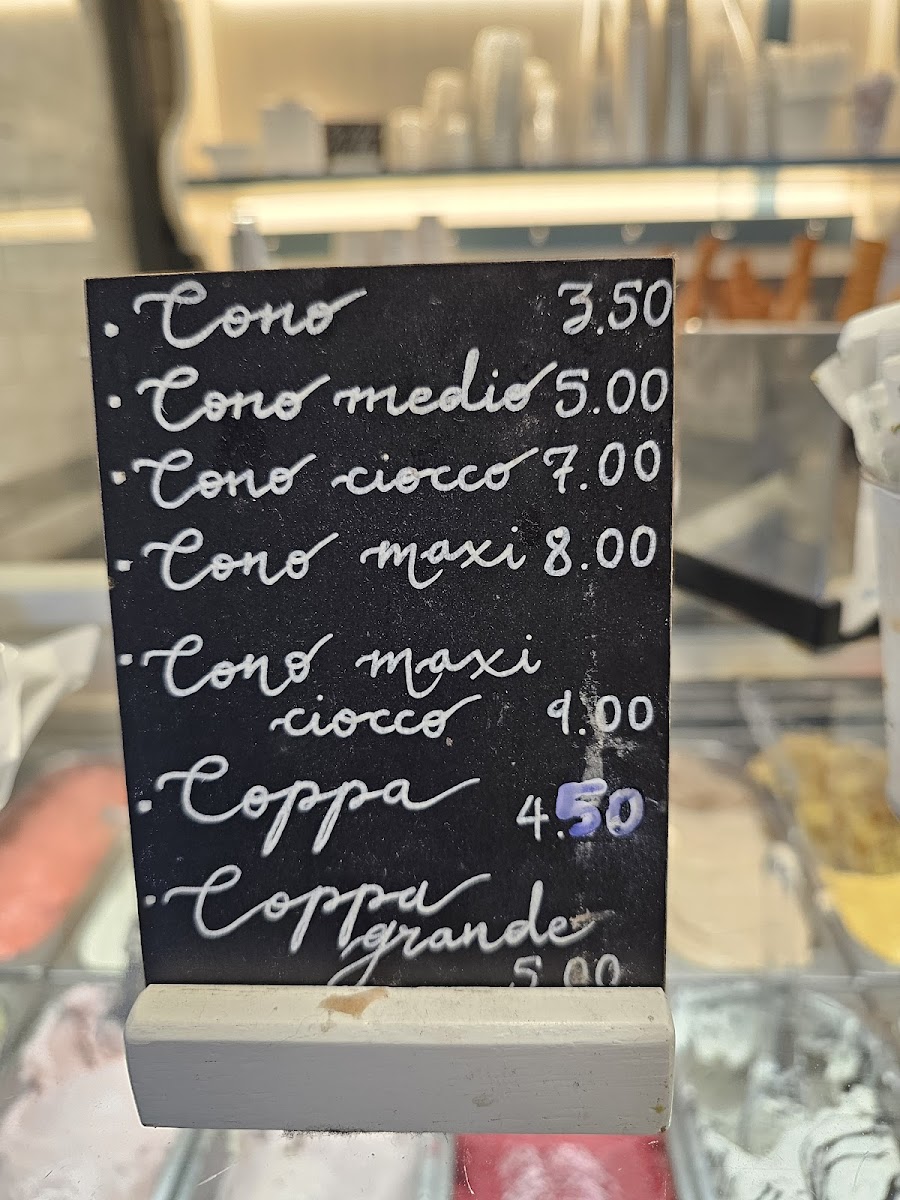 • Cono 3.50
• Cono medio 5.00
• Cono ciocco 7.00
• Cono maxi 8.00
• Cono maxi
ciocco 9.00
• Coppa 4.50
• Coppa
grande
5.00